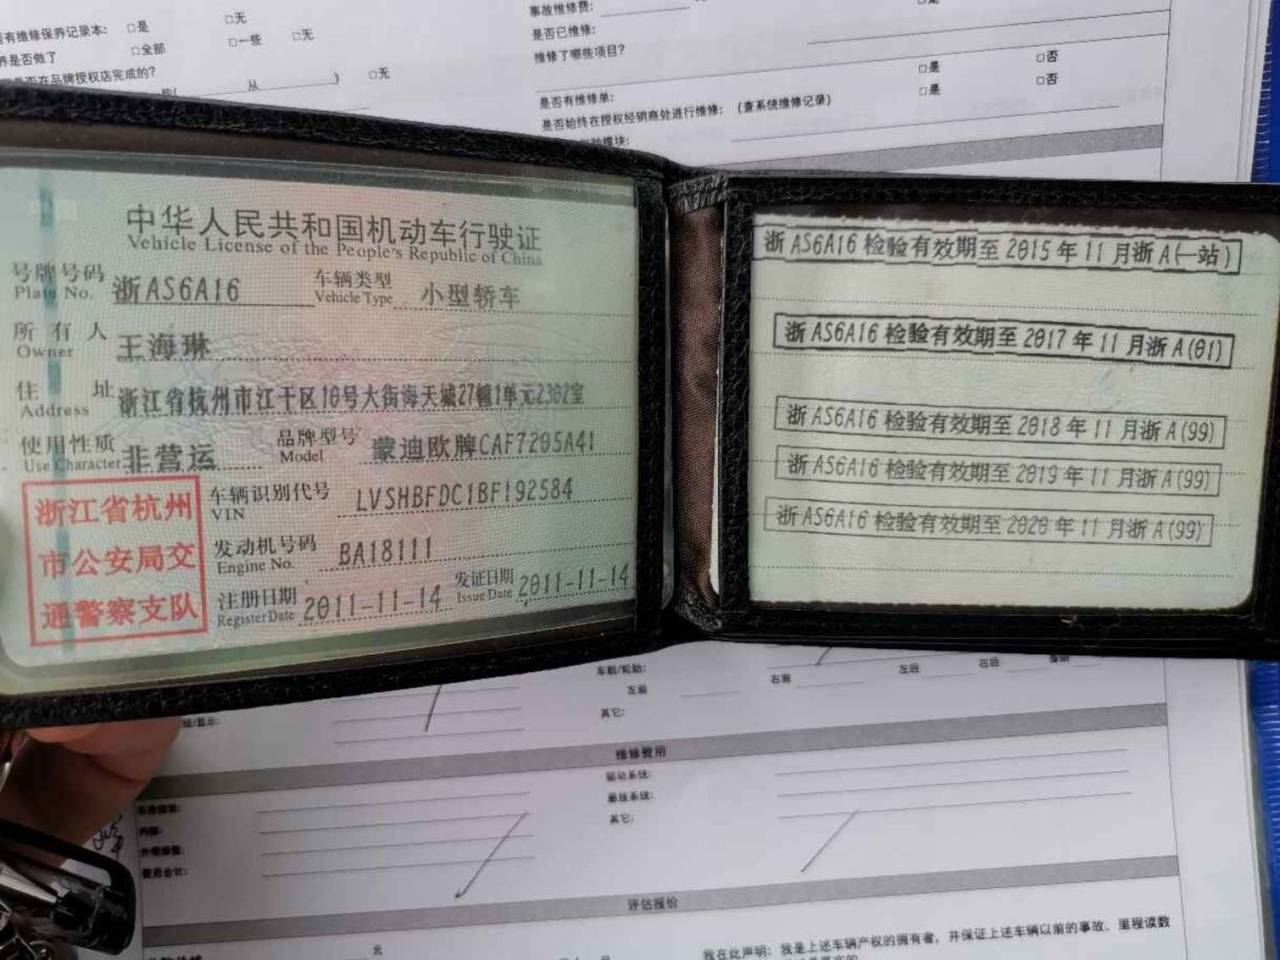 有维修保养记录本: □是 □无
□全部 □一些 □无
是否在品牌授权店完成的?
从 ) □无
事故维修费:
是否已维修:
维修了哪些项目?
□是 □否
是否有维修单: □是 □否
是否始终在授权经销商处进行维修: (查系统维修记录)
中华人民共和国机动车行驶证
Vehicle License of the People's Republic of China
号牌号码 浙AS6A16 车辆类型 小型轿车
Plate No. Vehicle Type
所有人 王海琳
Owner
住址 浙江省杭州市江干区10号大街海天城27幢1单元2302室
Address
使用性质 非营运 品牌型号 蒙迪欧牌CAF7205A41
Use Character Model
车辆识别代号 LVSHBFDC1BF192584
VIN
发动机号码 BA18111
Engine No.
注册日期 2011-11-14 发证日期 2011-11-14
Register Date Issue Date
浙江省杭州
市公安局交
通警察支队
浙AS6A16检验有效期至2015年11月浙A(一站)
浙AS6A16检验有效期至2017年11月浙A(01)
浙AS6A16检验有效期至2018年11月浙A(99)
浙AS6A16检验有效期至2019年11月浙A(99)
浙AS6A16检验有效期至2020年11月浙A(99)
左前 右前 左后 右后
其它:
维修费用
驱动系统:
底盘系统:
其它:
内部:
费用合计:
评估报价
元
我在此声明: 我是上述车辆产权的拥有者, 并保证上述车辆以前的事故、里程读数